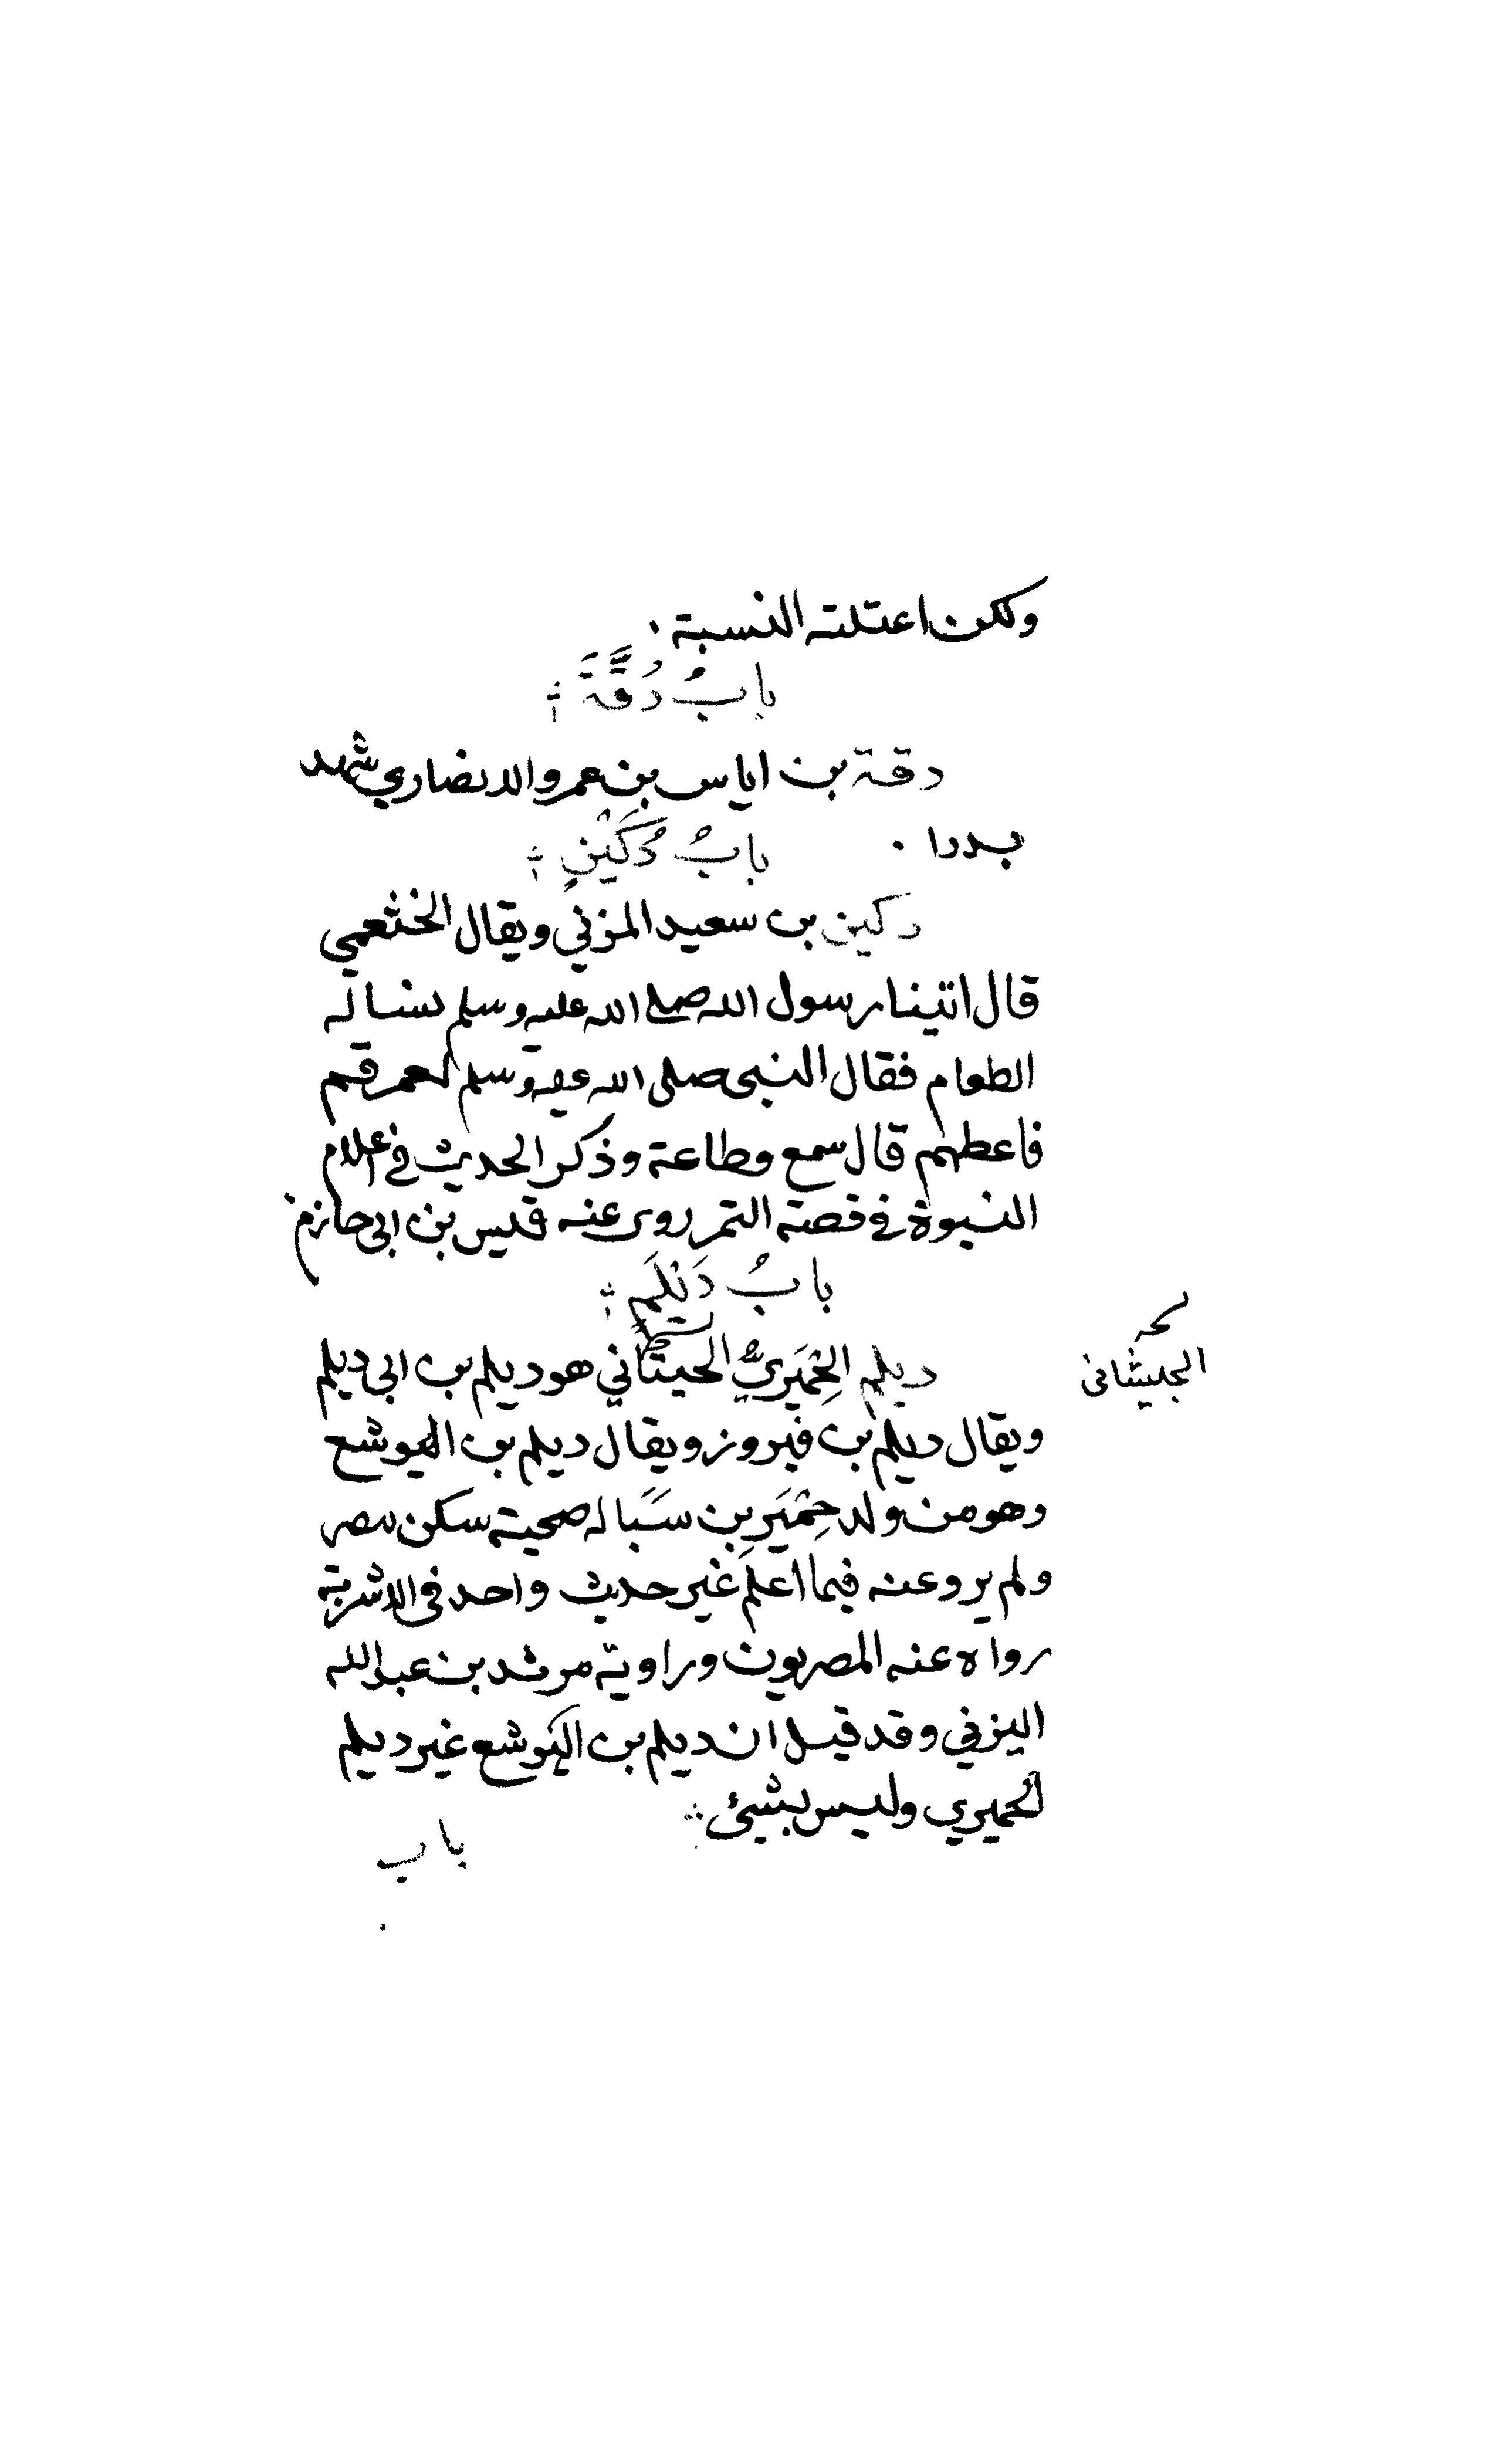 ولكن اعتلته النسبة .
بابُ دُقَّةَ
دقة بن اياس بن عمرو الانصاري شهد
بدرا .
بابُ دُكَيْنٍ
دكين بن سعيد المزني ويقال الخثعمي
قال اتينا رسول الله صلى الله عليه وسلم نساله
الطعام فقال النبي صلى الله عليه وسلم لعمر قم
فاعطهم قال سمع وطاعة وذكر الحديث في اعلام
النبوة في قصته التمر روى عنه قيس بن ابي حازم
بابُ دَيْلَمٍ
ديلم الحِمْيَريُّ الحيشاني هو ديلم بن ابي ديلم
الجيشانى
ويقال ديلم بن فيروز ويقال ديلم بن الهوشع
وهو من ولد حِمْيَرِ بن سَبَا له صحبة سكن مصر
ولم يرو عنه فيما اعلم غير حديث واحد في الاشربة
رواه عنه المصريون وراويه مرثد بن عبد الله
اليزني وقد قيل ان ديلم بن الهَوشع غير ديلم
الحميري وليس بشيئ
باب